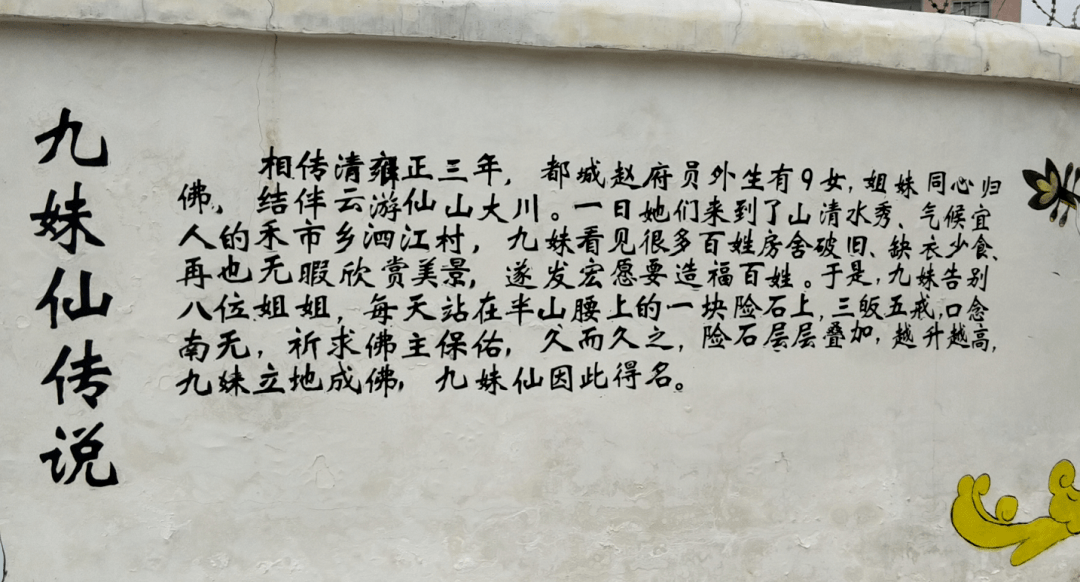 九妹仙传说
相传清雍正三年，都城赵府员外生有9女，姐妹同心归
佛，结伴云游仙山大川。一日她们来到了山清水秀、气候宜
人的禾市乡泗江村，九妹看见很多百姓房舍破旧、缺衣少食、
再也无暇欣赏美景，遂发宏愿要造福百姓。于是，九妹告别
八位姐姐，每天站在半山腰上的一块险石上，三皈五戒，口念
南无，祈求佛主保佑，久而久之，险石层层叠加，越升越高，
九妹立地成佛，九妹仙因此得名。